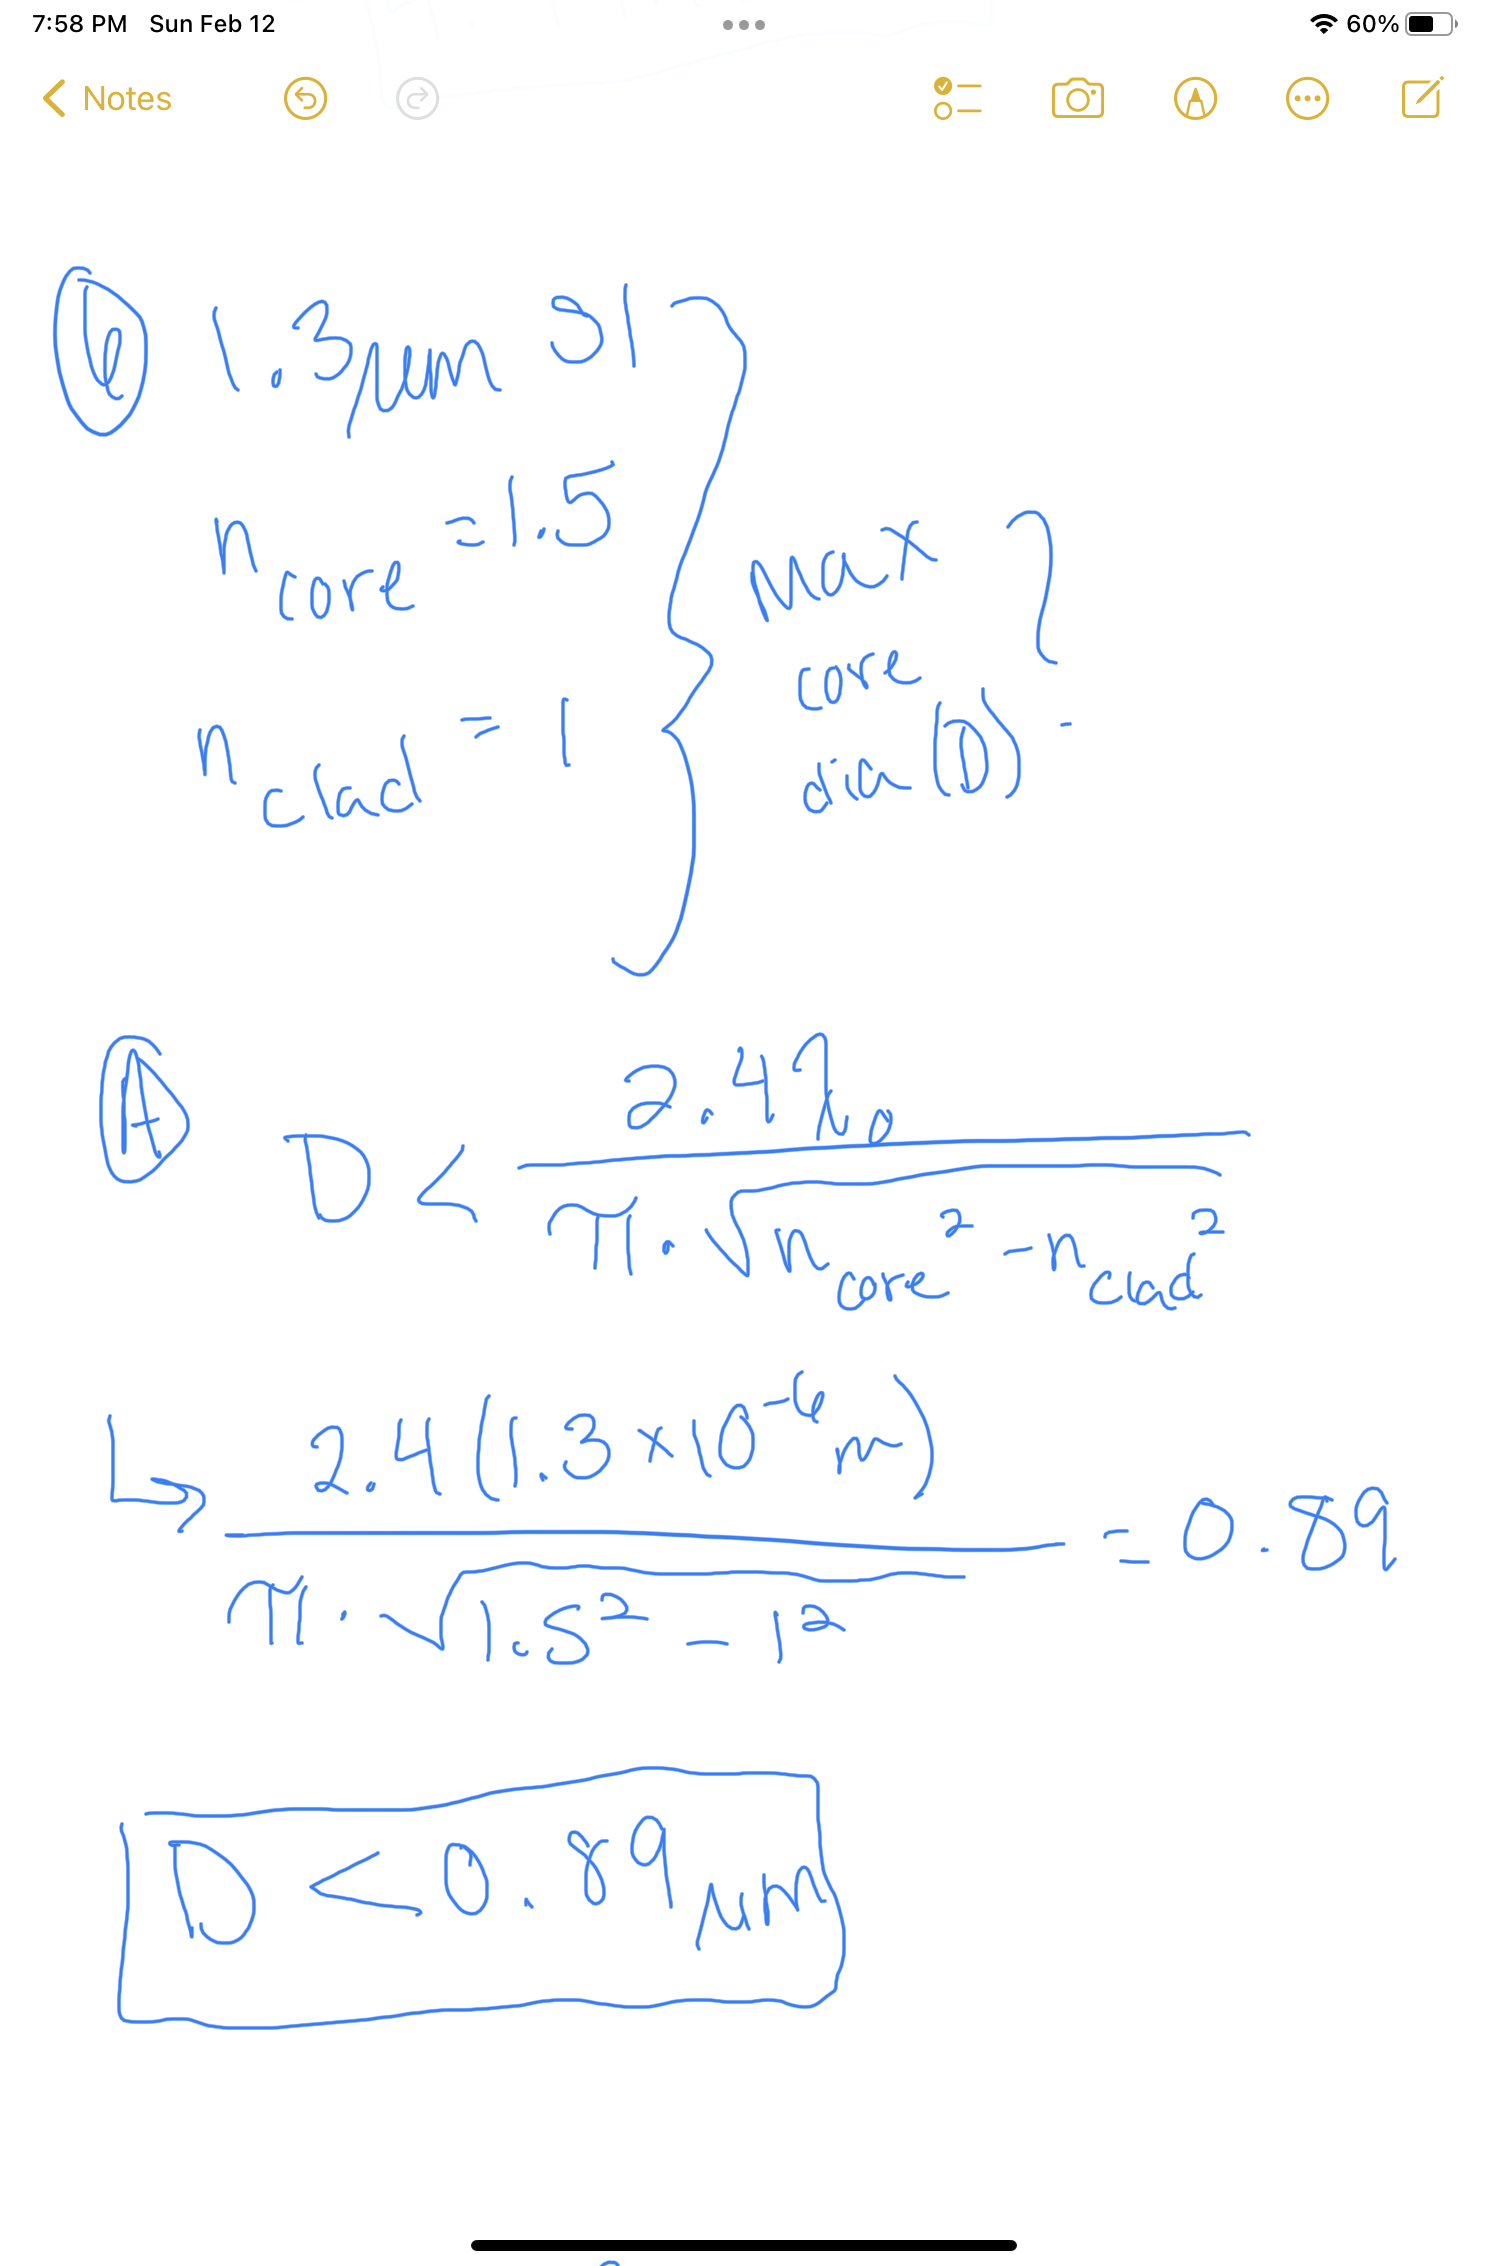 7:58 PM Sun Feb 12 60%
Notes
6 1.3μm SI
n core = 1.5
n clad = 1
max
core
dia (D) =
A D < 2.4λ₀ / π · √(n core² - n clad²)
↳ 2.4(1.3 x 10⁻⁶ m) / π · √(1.5² - 1²) = 0.89
D < 0.89 μm